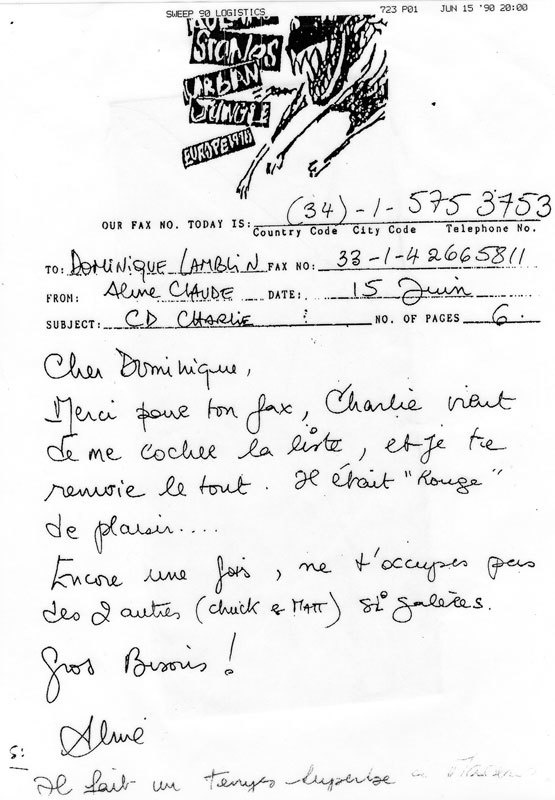 SWEEP 90 LOGISTICS 723 P01 JUN 15 '90 20:00
STONES
URBAN
JUNGLE
EUROPE 1990
OUR FAX NO. TODAY IS: (34)-1-575 3753
Country Code City Code Telephone No.
TO: DOMINIQUE LAMBLIN FAX NO: 33-1-42665811
FROM: Aline CLAUDE DATE: 15 Juin
SUBJECT: CD CHARLIE NO. OF PAGES 6.
Cher Dominique,
Merci pour ton fax, Charlie vient
de me cocher la liste, et je te
renvoie le tout. Il était "Rouge"
de plaisir....
Encore une fois, ne t'occupes pas
des 2 autres (chuck & MATT) si galères.
Gros Bisous!
Aline
S:
Il fait un temps superbe a